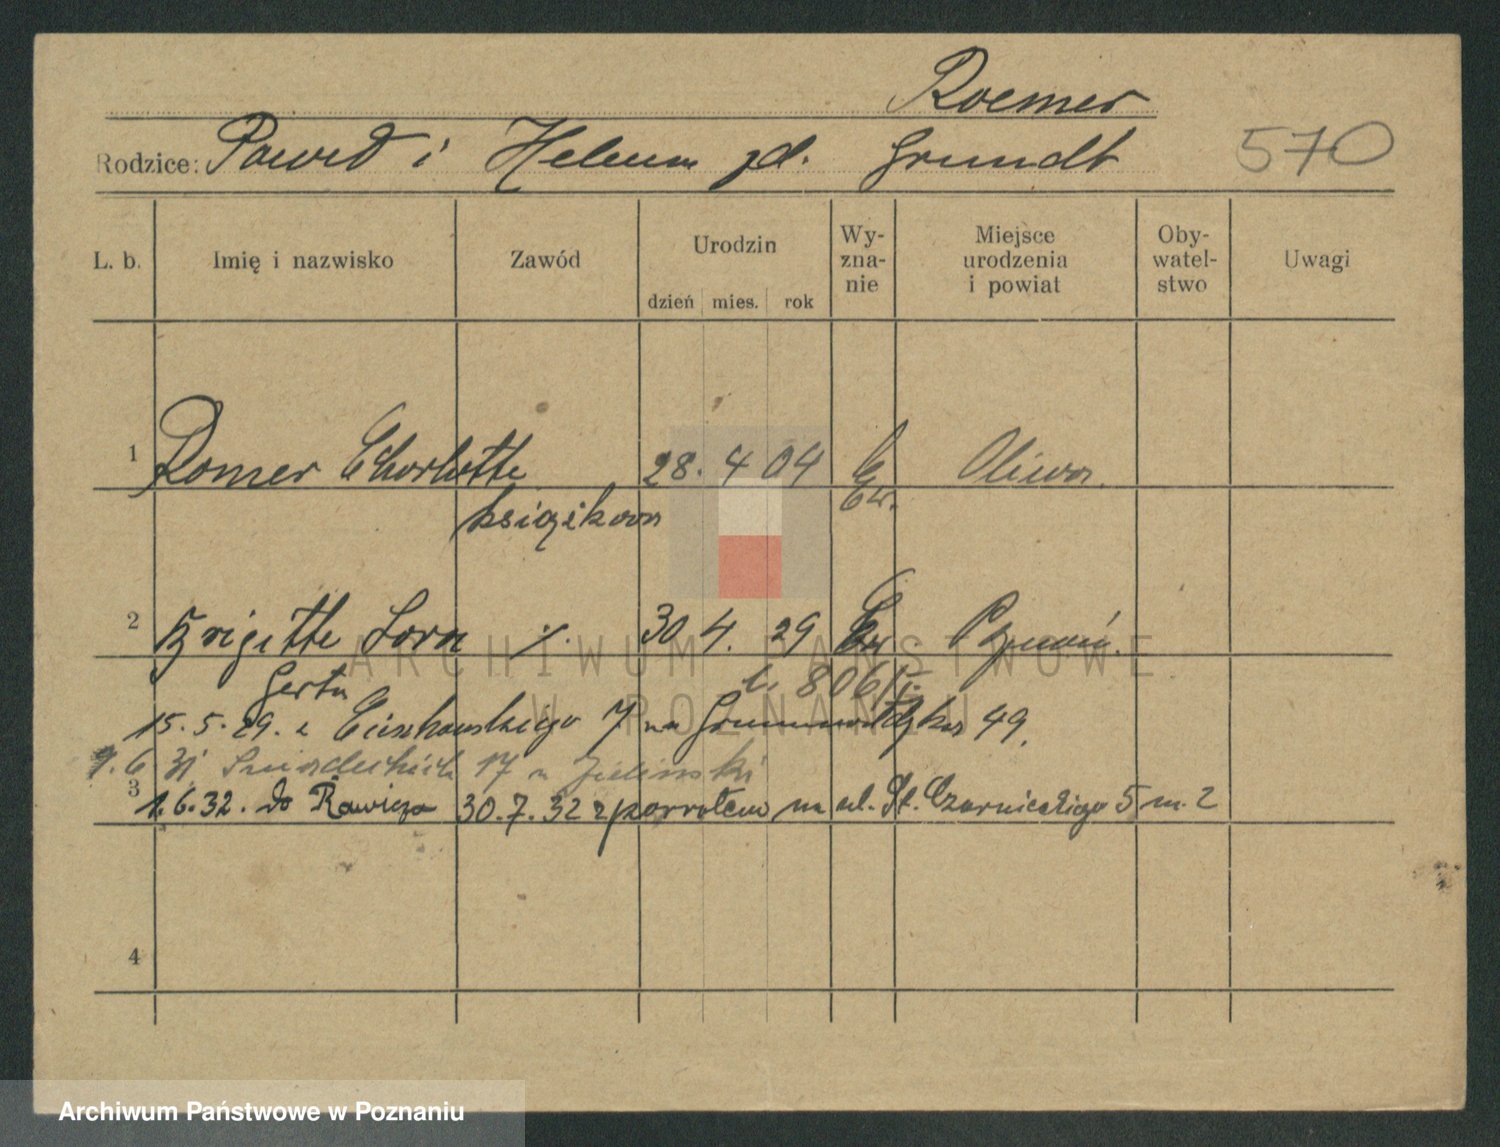 Roemer
Rodzice: Paweł i Helena zd. Grundt 570
L. b. Imię i nazwisko Zawód Urodzin dzień mies. rok Wy-zna-nie Miejsce urodzenia i powiat Oby-watel-stwo Uwagi
1 Romer Charlotte 28. 4 04 Ew. Oliwa.
książkowa
2 Brigitte Lora ./. 30 4. 29 Ew Poznań.
Gerta 806/
15.5.29. z 7 na Grunwaldzka 49.
1.6 31 Śniadeckich 17 u Zielinski
3
1.6.32. do Rawicza 30.7.32 z powrotem na ul. St. Czarnieckiego 5 m. 2
4
ARCHIWUM PAŃSTWOWE
W POZNANIU
Archiwum Państwowe w Poznaniu